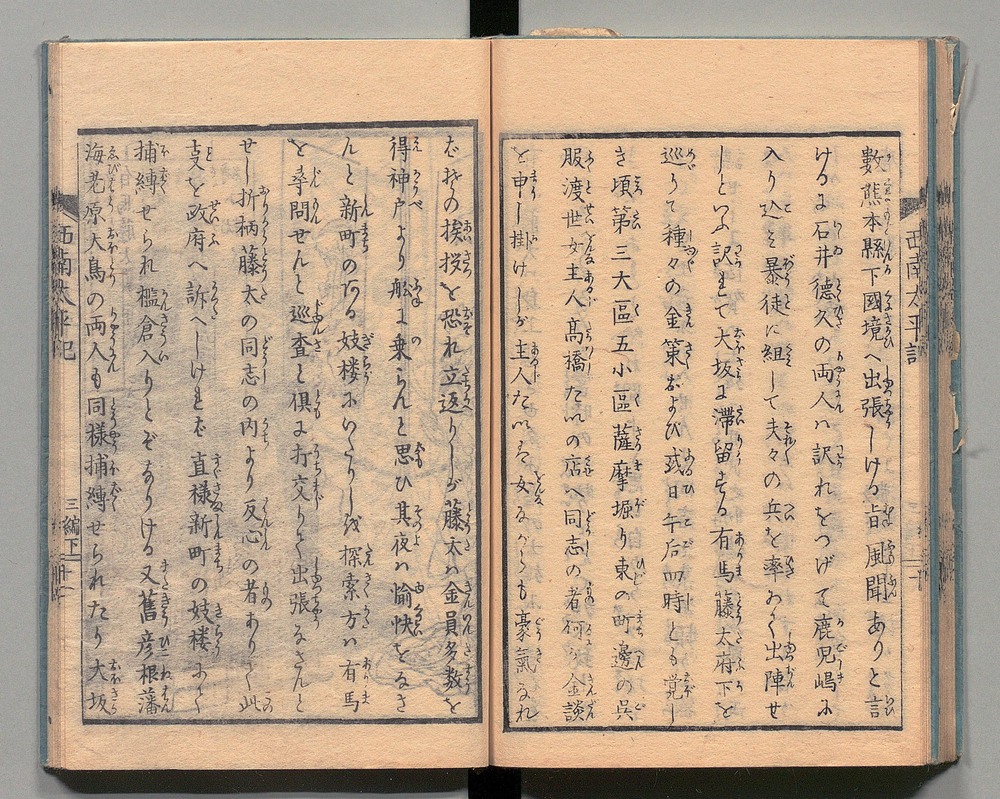 數熊本縣下國境へ出張しける旨風聞ありと言
けるに石井德久の両人ハ訳れをつげて鹿児嶋に
入り込ミ暴徒に組して夫々の兵を率ゐて出陣せ
しといふ訳にて大坂に滞留する有馬藤太府下を
巡りて種々の金策および或日午后四時とも覚し
き頃第三大區五小區薩摩堀り東の町邊の呉
服渡世女主人髙橋たいの店へ同志の者何名金談
を申し掛けしが主人たいハ女ながらも豪氣なれ
バその挨拶を恐れ立返りしが藤太ハ金員多数を
得神戸より舩に乗らんと思ひ其夜ハ愉快をなさ
んと新町のある妓楼にいたりしを探索方ハ有馬
を尋問せんと巡査と倶に打交りて出張なさんと
せし折柄藤太の同志の内より反心の者ありて此
支を政府へ訴へしけれバ直様新町の妓楼にて
捕縛せられ檻倉入りとぞありける又舊彦根藩
海老原大鳥の両人も同様捕縛せられたり大坂
西南太平記
三編下